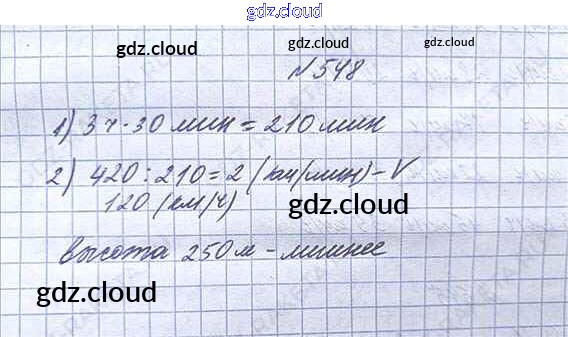 gdz.cloud
gdz.cloud gdz.cloud gdz.cloud
№548
1) 3ч 30 мин = 210 мин
2) 420 : 210 = 2 (км/мин) - V
120 (км/ч)
gdz.cloud
высота 250 м - лишнее
gdz.cloud